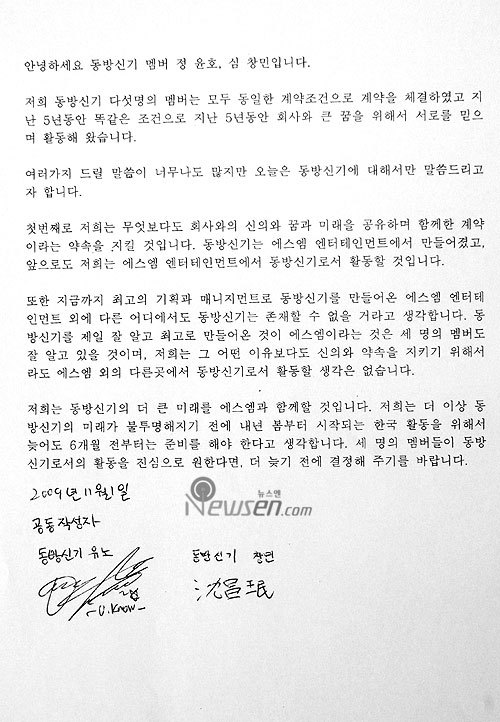 안녕하세요 동방신기 멤버 정 윤호, 심 창민입니다.
저희 동방신기 다섯명의 멤버는 모두 동일한 계약조건으로 계약을 체결하였고 지
난 5년동안 똑같은 조건으로 지난 5년동안 회사와 큰 꿈을 위해서 서로를 믿으
며 활동해 왔습니다.
여러가지 드릴 말씀이 너무나도 많지만 오늘은 동방신기에 대해서만 말씀드리고
자 합니다.
첫번째로 저희는 무엇보다도 회사와의 신의와 꿈과 미래를 공유하며 함께한 계약
이라는 약속을 지킬 것입니다. 동방신기는 에스엠 엔터테인먼트에서 만들어졌고,
앞으로도 저희는 에스엠 엔터테인먼트에서 동방신기로서 활동할 것입니다.
또한 지금까지 최고의 기획과 매니지먼트로 동방신기를 만들어온 에스엠 엔터테
인먼트 외에 다른 어디에서도 동방신기는 존재할 수 없을 거라고 생각합니다. 동
방신기를 제일 잘 알고 최고로 만들어온 것이 에스엠이라는 것은 세 명의 멤버도
잘 알고 있을 것이며, 저희는 그 어떤 이유보다도 신의와 약속을 지키기 위해서
라도 에스엠 외의 다른곳에서 동방신기로서 활동할 생각은 없습니다.
저희는 동방신기의 더 큰 미래를 에스엠과 함께할 것입니다. 저희는 더 이상 동
방신기의 미래가 불투명해지기 전에 내년 봄부터 시작되는 한국 활동을 위해서
늦어도 6개월 전부터는 준비를 해야 한다고 생각합니다. 세 명의 멤버들이 동방
신기로서의 활동을 진심으로 원한다면, 더 늦기 전에 결정해 주기를 바랍니다.
2009년 11월 1일
뉴스엔
Newsen.com
공동작성자
동방신기 유노 동방신기 창민
-U.Know- 沈昌珉